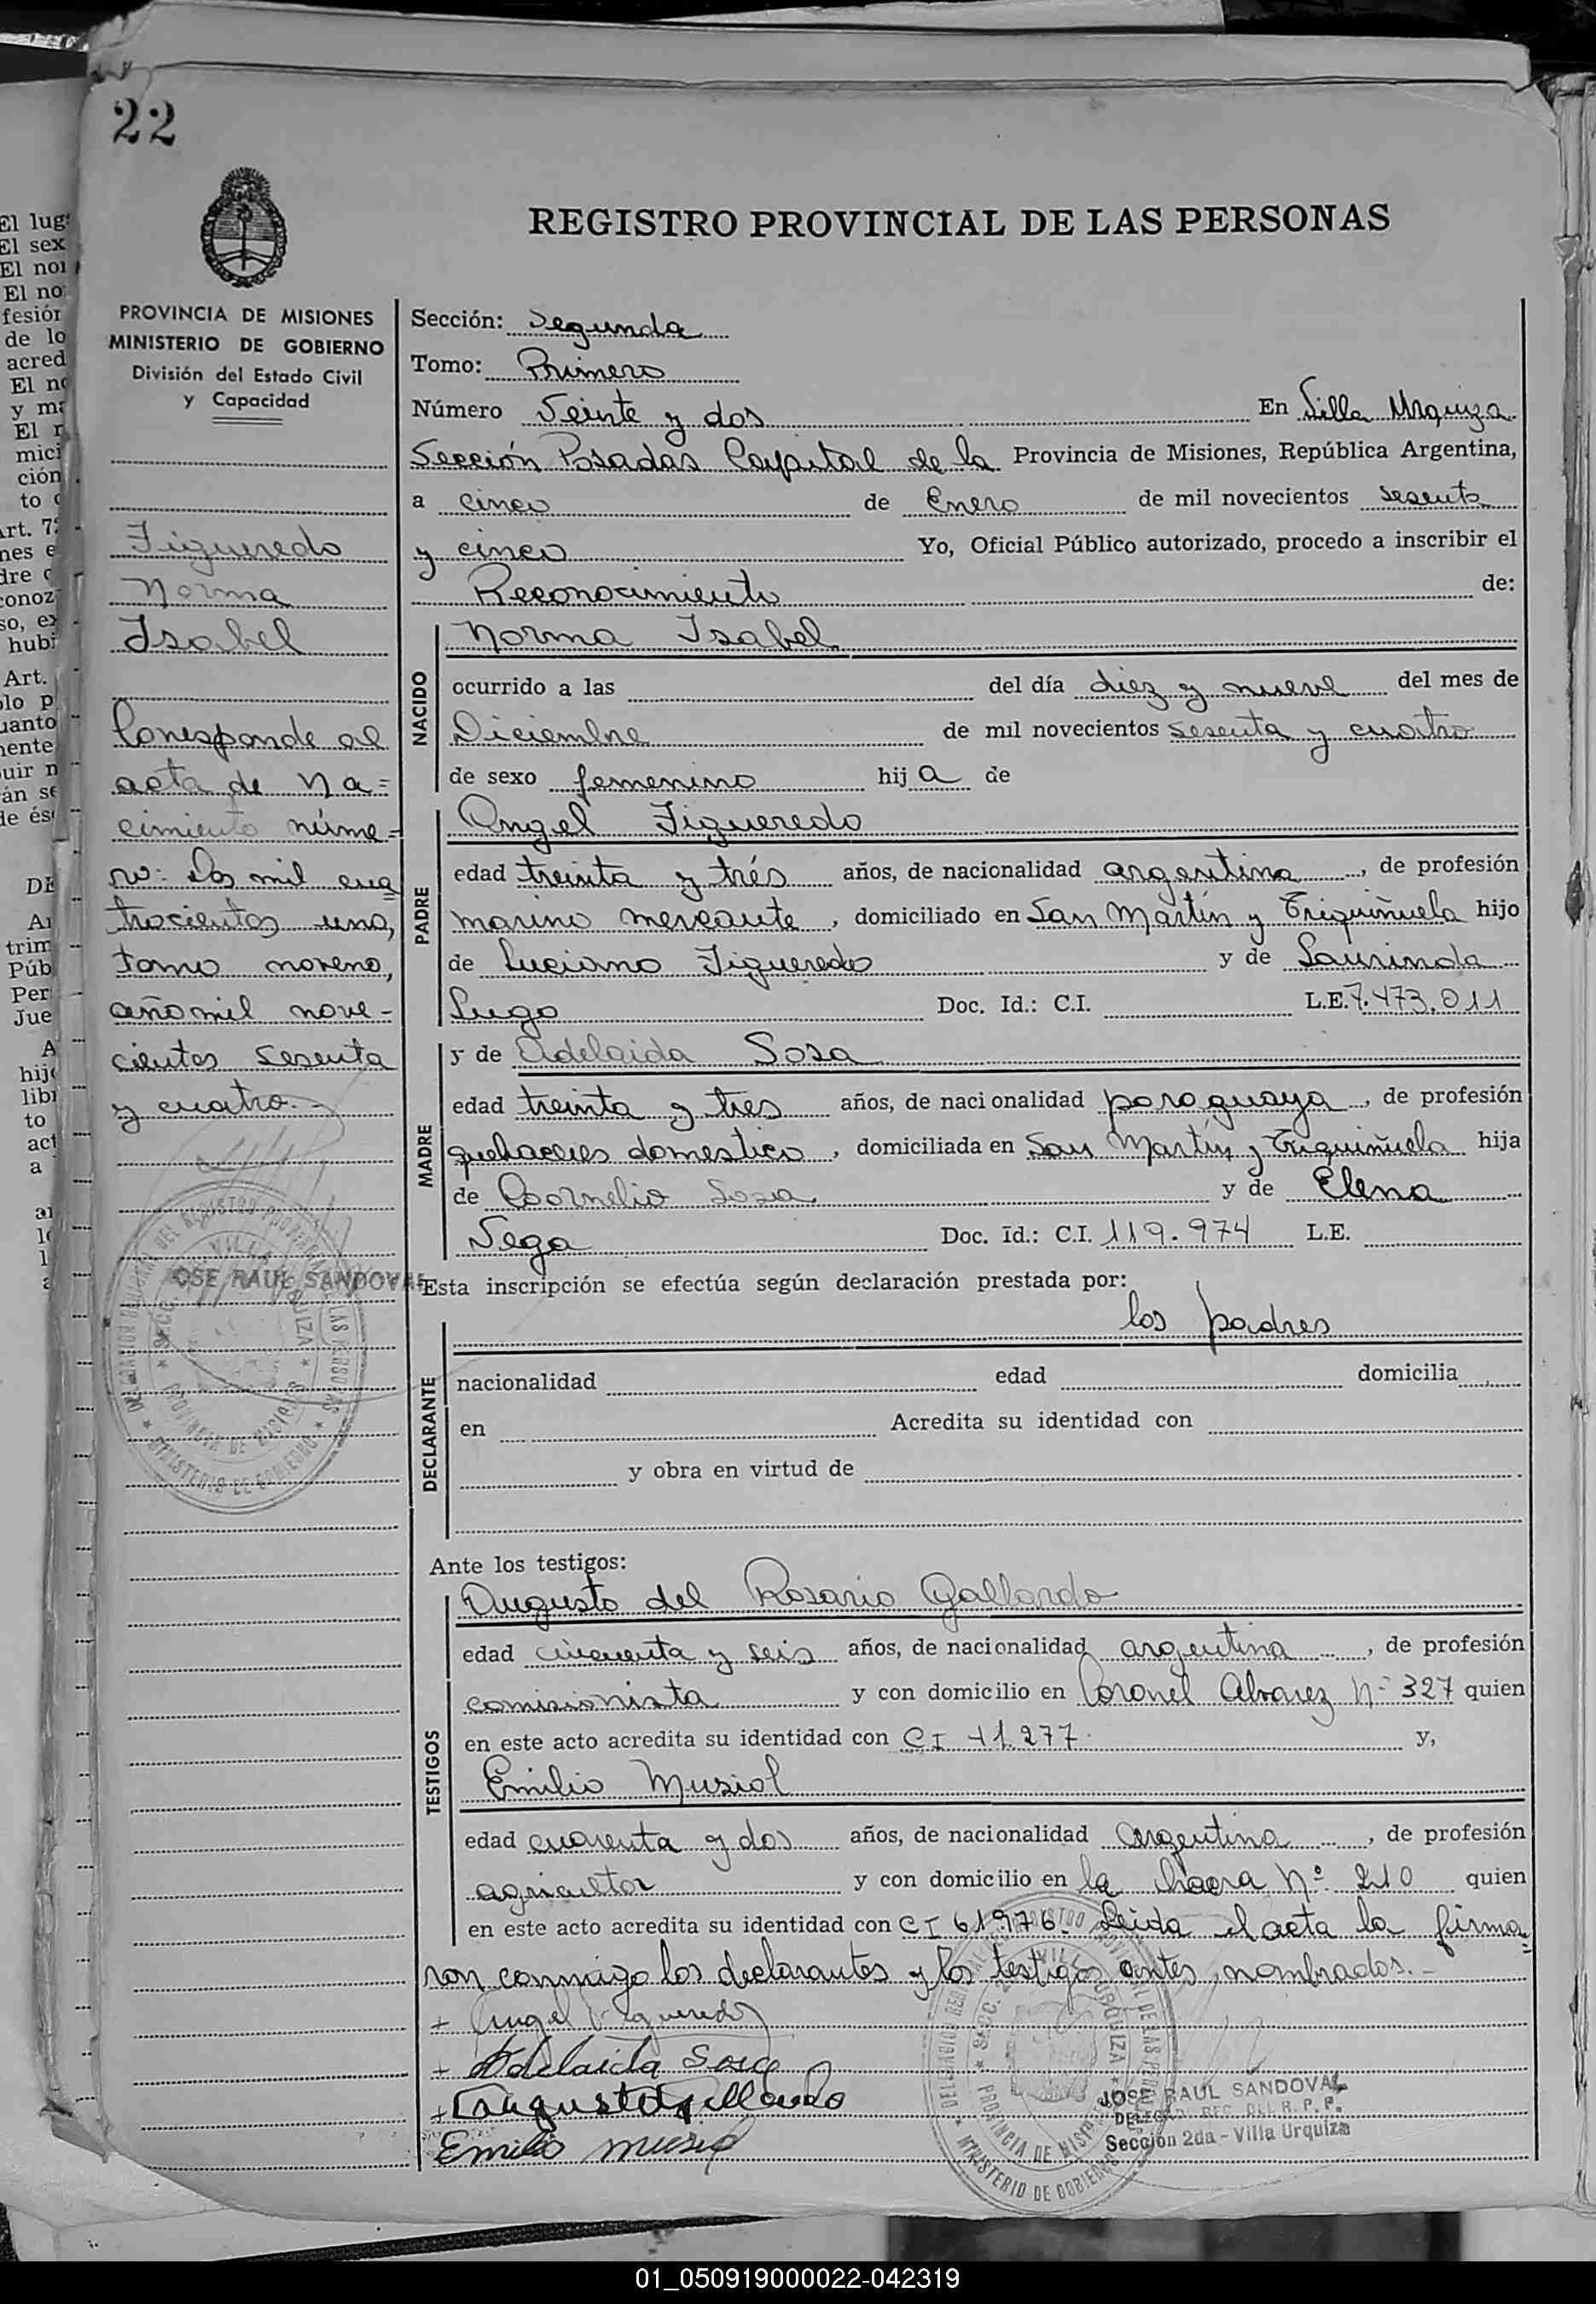 22
REGISTRO PROVINCIAL DE LAS PERSONAS
PROVINCIA DE MISIONES
MINISTERIO DE GOBIERNO
División del Estado Civil
y Capacidad
Figueredo
Norma
Isabel
Corresponde al
acta de Na=
cimiento núme=
ro: Dos mil cua
trocientos uno,
tomo noveno,
año mil nove-
cientos sesenta
y cuatro.-
JOSE RAUL SANDOVAL
Sección: Segunda
Tomo: Primero
Número Veinte y dos En Villa Urquiza
Sección Posadas Capital de la Provincia de Misiones, República Argentina,
a cinco de Enero de mil novecientos sesenta
y cinco Yo, Oficial Público autorizado, procedo a inscribir el
Reconocimiento de:
NACIDO
Norma Isabel
ocurrido a las del día diez y nueve del mes de
Diciembre de mil novecientos sesenta y cuatro
de sexo femenino hija de
PADRE
Angel Figueredo
edad treinta y trés años, de nacionalidad argentina, de profesión
marino mercante, domiciliado en San Martín y Triquiñuela hijo
de Luciano Figueredo y de Laurinda
Lugo Doc. Id.: C.I. L.E. 7.473.011
MADRE
y de Adelaida Sosa
edad treinta y tres años, de nacionalidad paraguaya, de profesión
quehaceres domestico, domiciliada en San Martín y Triquiñuela hija
de Cornelio Sosa y de Elena
Vega Doc. Id.: C.I. 119.974 L.E.
Esta inscripción se efectúa según declaración prestada por:
los padres
DECLARANTE
nacionalidad edad domicilia
en Acredita su identidad con
y obra en virtud de
Ante los testigos:
TESTIGOS
Augusto del Rosario Gallardo
edad cincuenta y seis años, de nacionalidad argentina, de profesión
comisionista y con domicilio en Coronel Alvarez Nº 327 quien
en este acto acredita su identidad con CI 11.277 y,
Emilio Musiol
edad cuarenta y dos años, de nacionalidad Argentina, de profesión
agricultor y con domicilio en la chacra Nº 210 quien
en este acto acredita su identidad con CI 61976. Leida el acta la firma=
ron conmigo los declarantes y los testigos antes nombrados.-
+ Angel Figueredo
+ Adelaida Sosa
+ Augusto Gallardo
Emilio Musiol
JOSE RAUL SANDOVAL
Sección 2da - Villa Urquiza
01_050919000022-042319